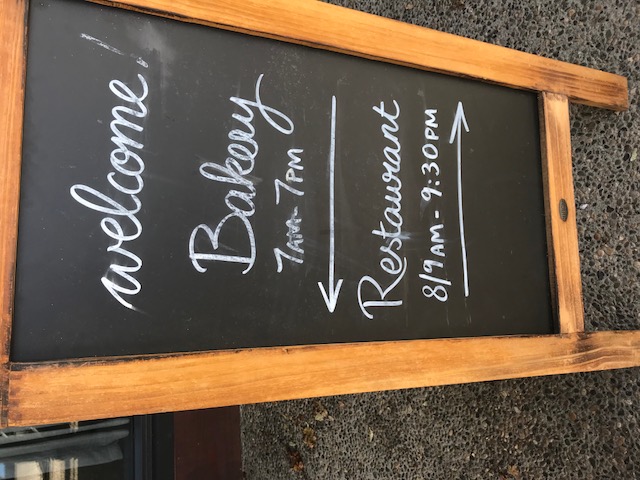 welcome!
Bakery
7AM - 7PM
Restaurant
8/9AM - 9:30PM